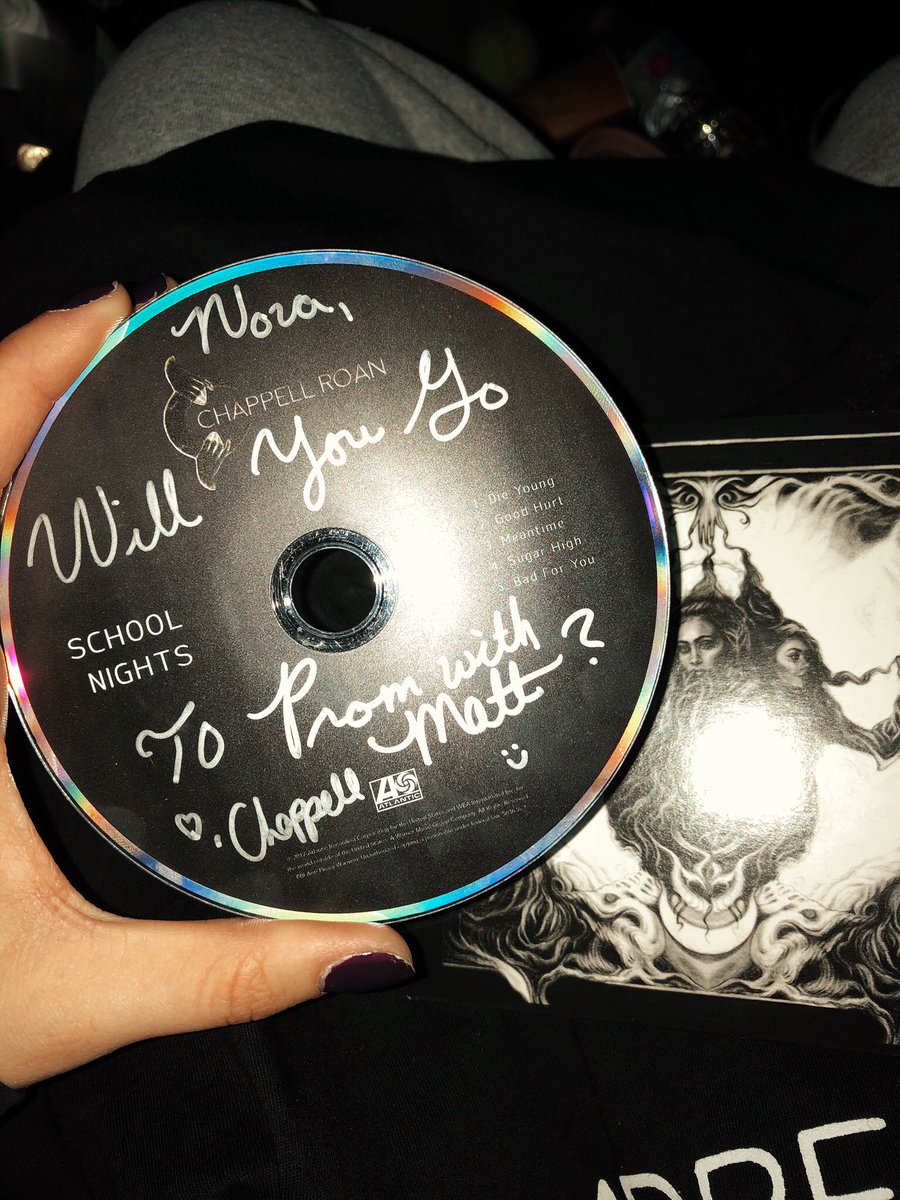 Nora,
CHAPPELL ROAN
Will You Go
1. Die Young
Good Hurt
Meantime
4. Sugar High
Bad For You
SCHOOL
NIGHTS
To Prom with
Matt?
♡, Chappell
ATLANTIC